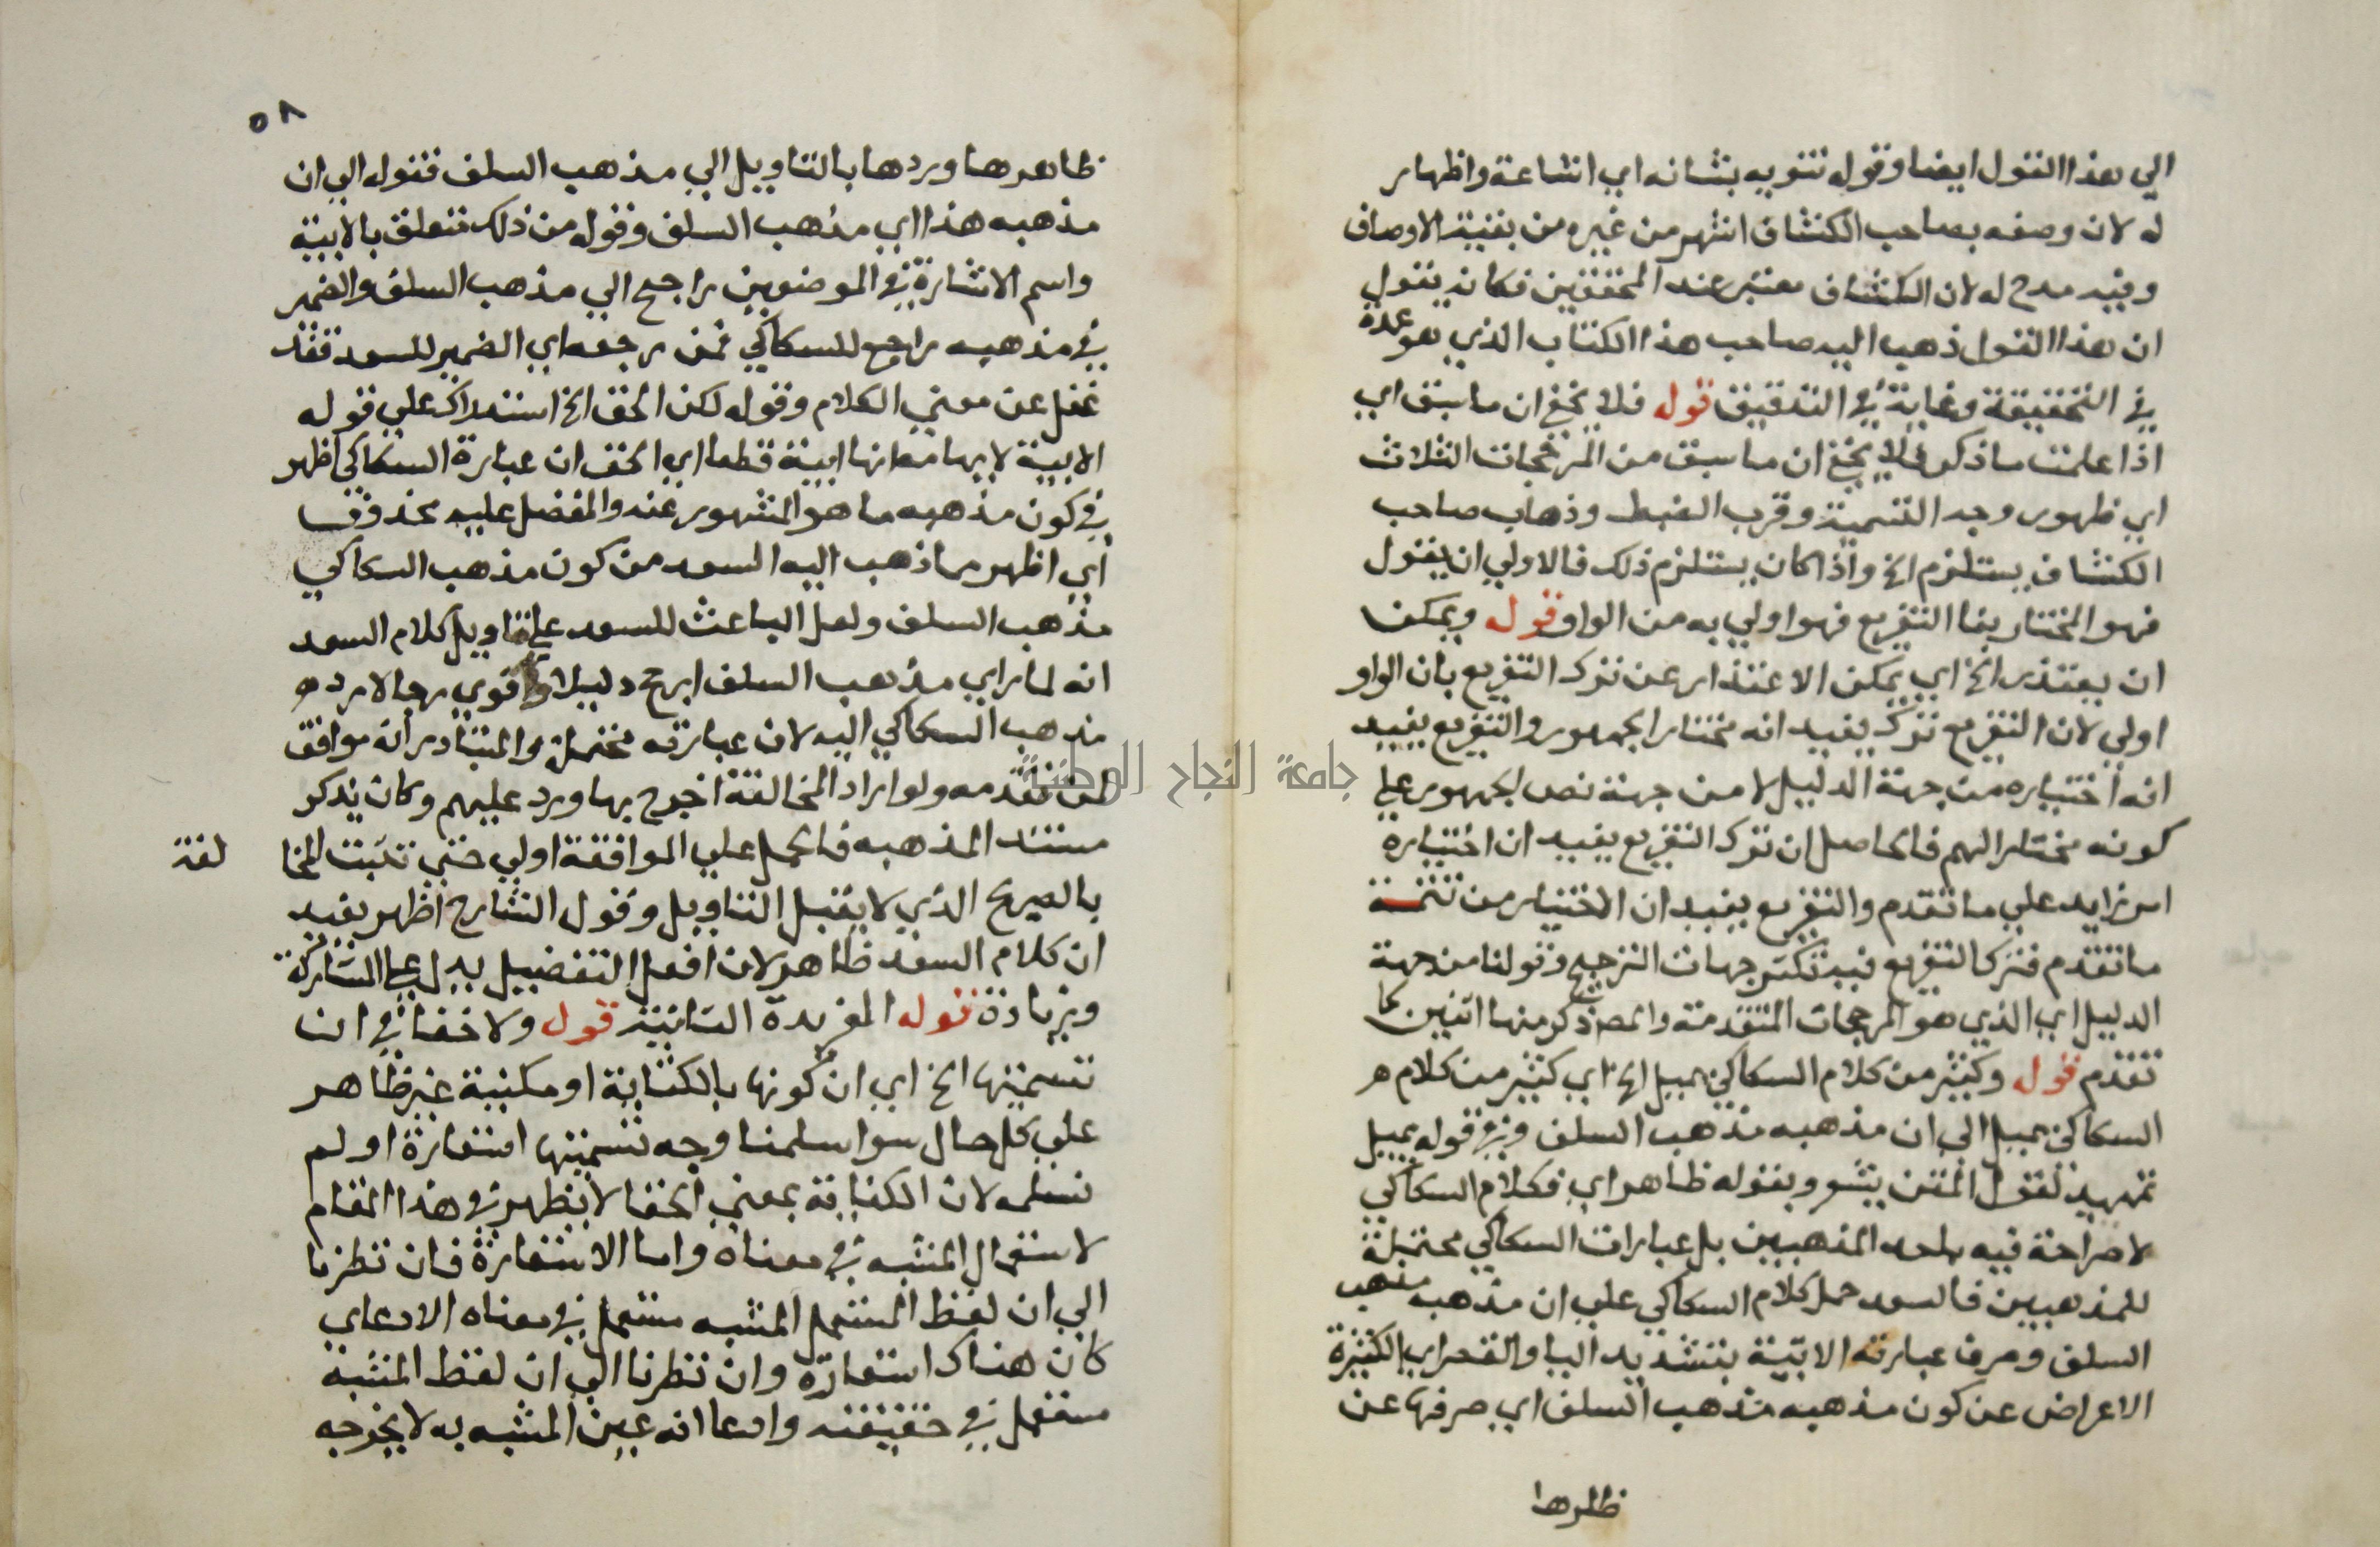 الي هذا القول ايضا وقوله تنويه بشانه اي اشاعة واظهار
له لان وصفه بصاحب الكشاف اشهر من غيره من بقية الاوصاف
وفيه مدح له لان الكشاف معتبر عند المحققين فكانه يقول
ان هذا القول ذهب اليه صاحب هذا الكتاب الذي هو عمدة
في التحقيقة وغاية في التدقيق قوله فلا يخفي ان ما سبق اي
اذا علمت ما ذكر فلا يخفي ان ما سبق من المرجحات الثلاث
اي ظهور وجه التسمية وقرب الضبط وذهاب صاحب
الكشاف يستلزم الخ واذا كان يستلزم ذلك فالاولي ان يقول
فهو المختار بفا التفريع فهو اولي به من الواو قوله ويمكن
ان يعتذر الخ اي يمكن الاعتذار عن ترك التفريع بان الواو
اولي لان التفريع تركه يفيد انه مختار الجمهور والتفريع يفيد
انه اختياره من جهة الدليل لا من جهة نص الجمهور علي
كونه مختارا لهم فالحاصل ان ترك التفريع يفيد ان اختياره
امر زايد علي ما تقدم والتفريع يفيد ان الاختيار من تتمة
ما تقدم فترك التفريع فيه تكثر جهات الترجيح وقولنا من جهة
الدليل اي الذي هو المرجحات المتقدمة والمص ذكر منها اثنين كما
تقدم قوله وكثير من كلام السكاكي يميل الخ اي كثير من كلام
السكاكي يميل الي ان مذهبه مذهب السلف وفي قوله يميل
تمهيد لقول المتن يشعر وبقوله ظاهر اي فكلام السكاكي
لا صراحة فيه باحد المذهبين بل عبارات السكاكي محتملة
للمذهبين فالسعد حمل كلام السكاكي علي ان مذهبه مذهب
السلف وصرف عبارته الابيّة بتشديد اليا والقصر اي الكثيرة
الاعراض عن كون مذهبه مذهب السلف اي صرفها عن
ظاهرها
٥٨
ظاهرها وردها بالتاويل الي مذهب السلف فقوله الي ان
مذهبه هذا اي مذهب السلف وقوله من ذلك متعلق بالابية
واسم الاشارة في الموضعين راجع الي مذهب السلف والضمير
في مذهبه راجع للسكاكي فمن رجعه اي الضمير للسعد فقد
غفل عن معني الكلام وقوله لكن الحق الخ استدراك علي قوله
الابية لايهامه انها ابية قطعا اي الحق ان عبارة السكاكي اظهر
في كون مذهبه ما هو المشهور عنه والمفضل عليه محذوف
اي اظهر مما ذهب اليه السعد من كون مذهب السكاكي
مذهب السلف ولعل الباعث للسعد علي تاويل كلام السعد
انه لما راي مذهب السلف ارجح دليلا واقوي رجالا رد
مذهب السكاكي اليه لان عبارته محتملة والمتبادر انه موافق
لمن تقدمه ولو اراد المخالفة لخرج بها ورد عليهم وكان يذكر
مستند المذهبه فالحمل علي الموافقة اولي حتي تثبت المخا لفة
بالصريح الذي لا يقبل التاويل وقول الشارح اظهر يفيد
ان كلام السعد ظاهر لان افعل التفضيل يدل علي المشاركة
وزيادة قوله الفريدة الثانية قوله ولا خفا في ان
تسميتها الخ اي ان كونها بالكناية او مكنية غير ظاهر
علي كل حال سوا سلمنا وجه تسميتها استعارة او لم
نسلمه لان الكناية بمعني الخفا لا يظهر في هذا المقام
لاستعمال المشبه في معناه واما الاستعارة فان نظرنا
الي ان لفظ المستعمل المشبه مستعمل في معناه الادعاي
كان هناك استعارة وان نظرنا الي ان لفظ المشبه
مستعمل في حقيقته وادعا انه عين المشبه به لا يخرجه
جامعة النجاح الوطنية